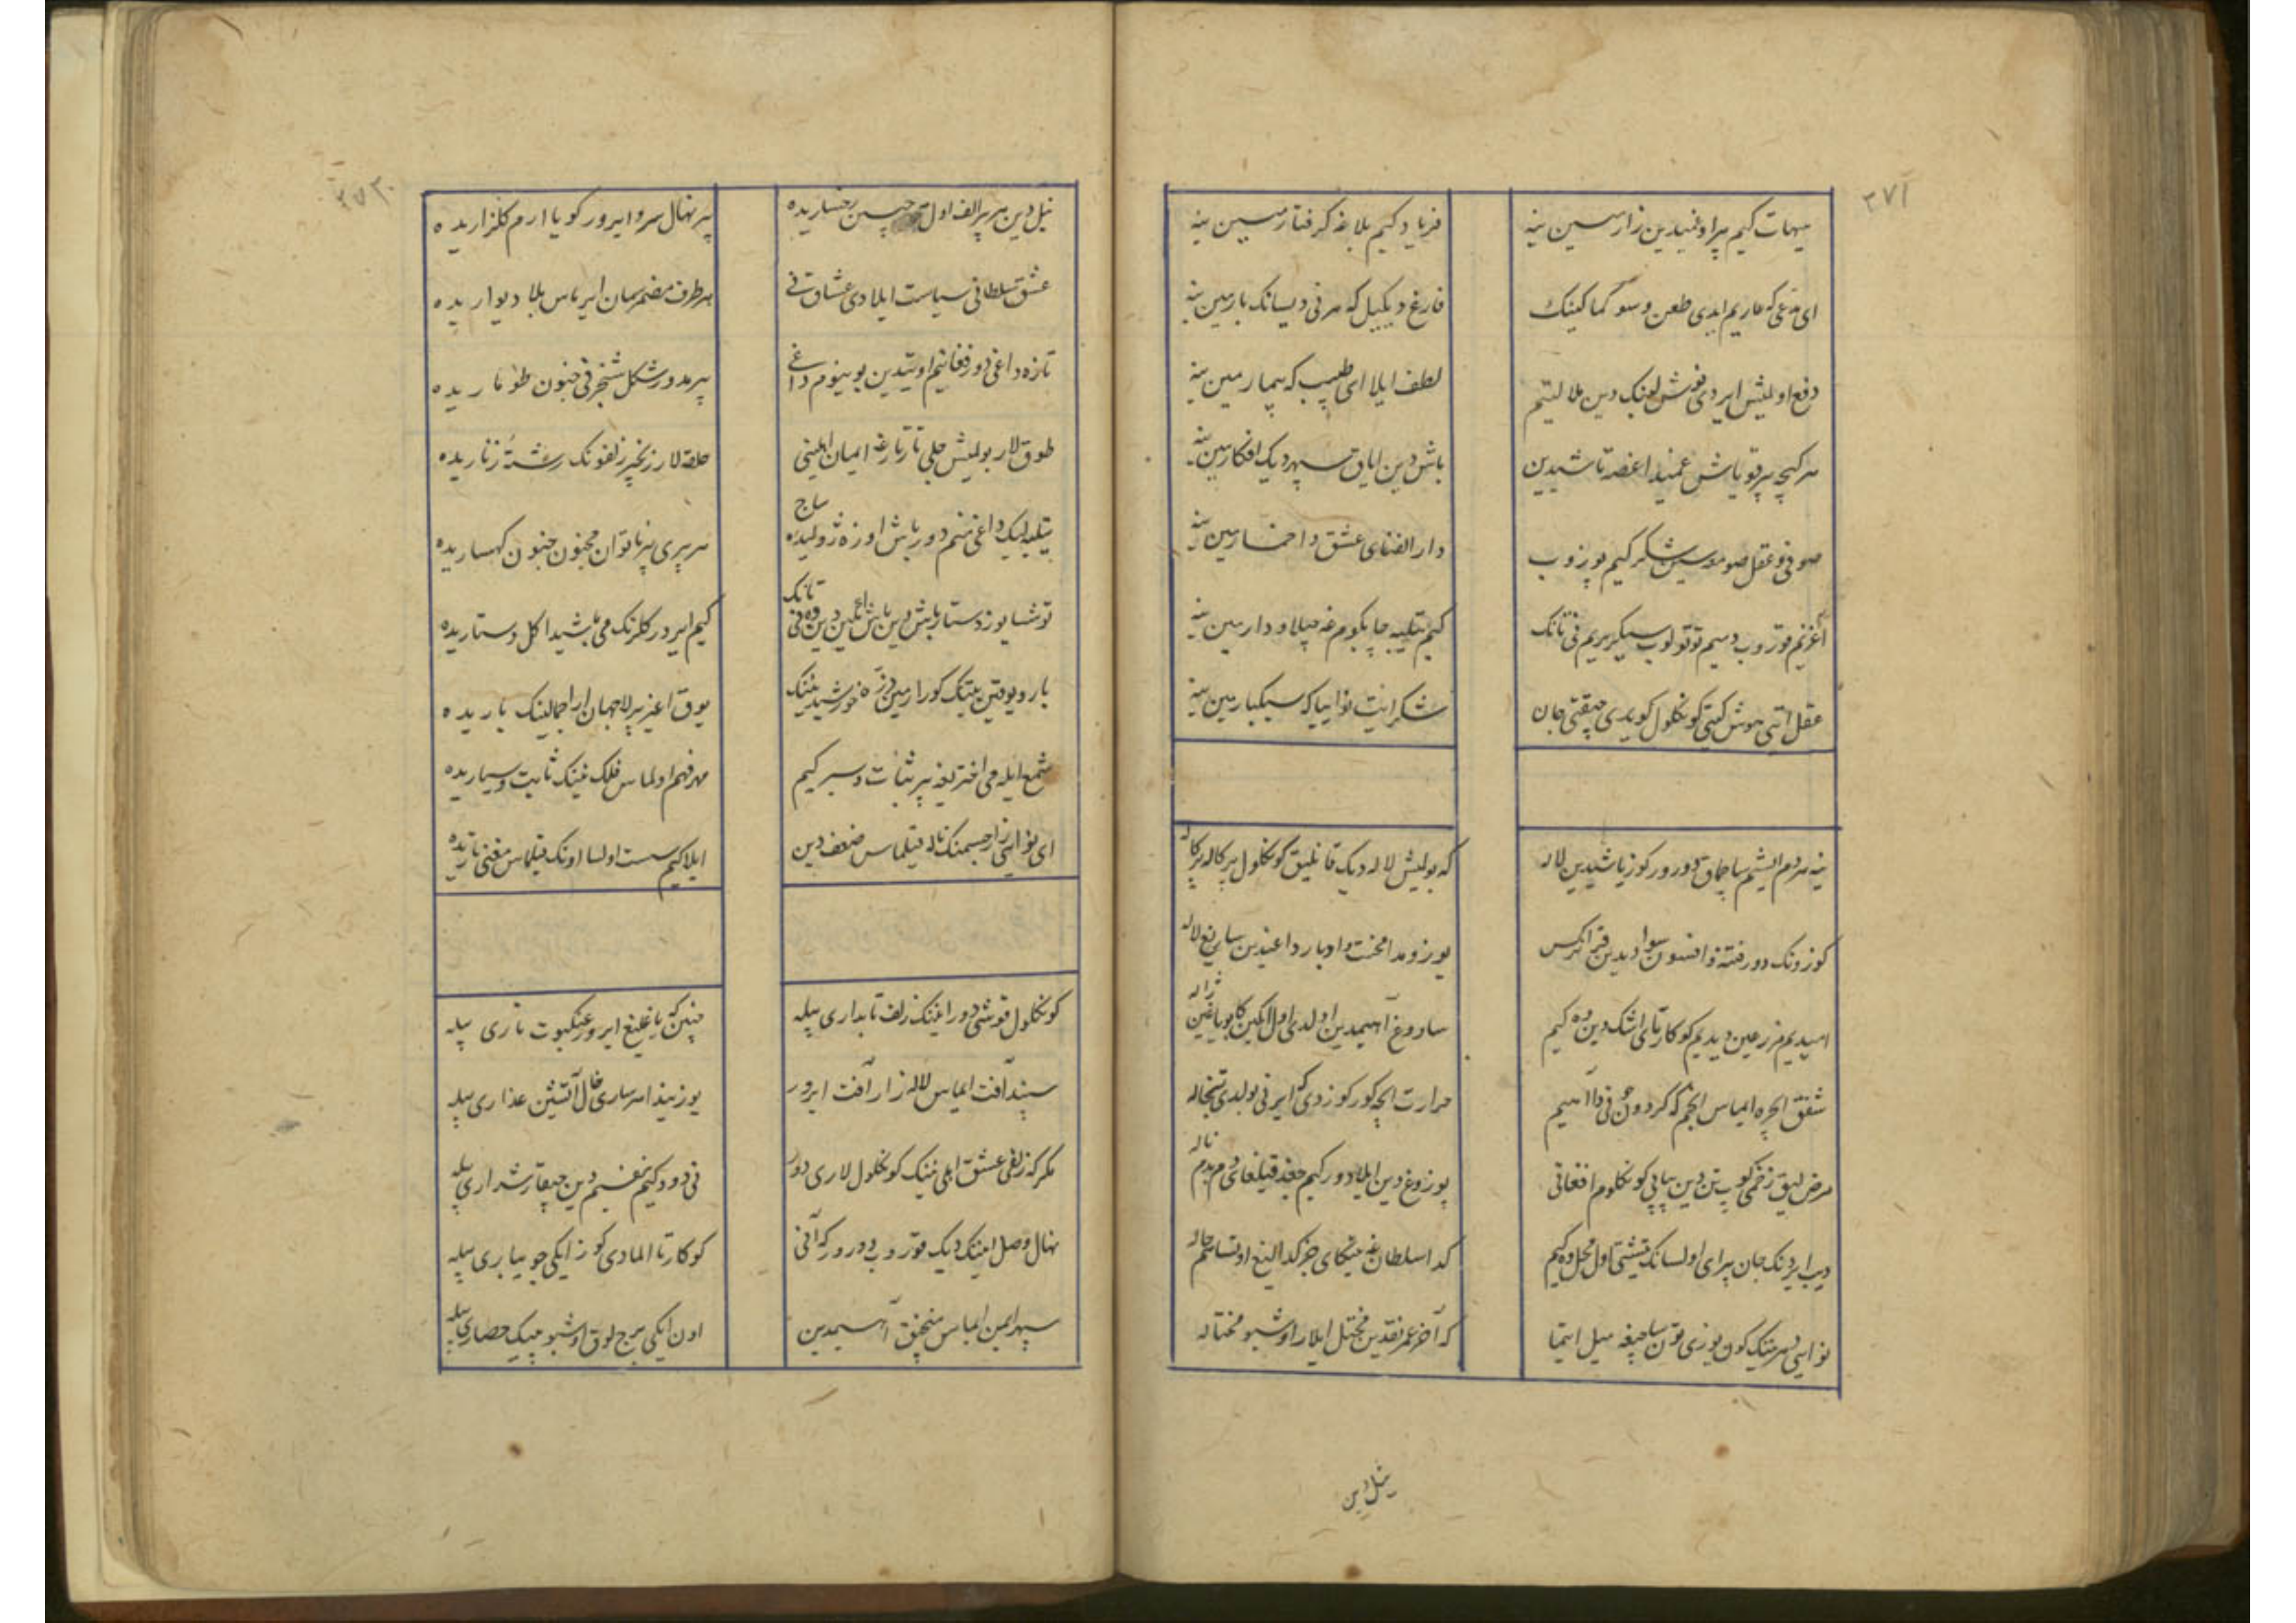 هیهات کیم پراوغمیدین زارمین ینه
فریاد کیم بلاغه گرفتارمین ینه
ای مدعی که عاریم ایدی طعن و سوکماکینک
فارغ دیکیل که هر نی دیسانک بارمین ینه
دفع اولمیش ایردی ملالتیم
لطف ایلا ای طبیب که بیمارمین ینه
هر کیچه بیر قویاش غمیدا غصه تاشیدین
باش دین ایاق سپهر دیک افکارمین ینه
صوفی و عقل صومعه سین شکر کیم بوزوب
دارالفنای عشق دا خمارمین ینه
آغزیم قوروب دمیم توتولوب سیکریریم نی تانک
کیم تیلبه چابکوم غه جیلاودارمین ینه
عقل ایتتی هوش کیتتی کونکلول کویدی چیقتی جان
شکر ایت نواییا که سبکبارمین ینه
ینه هردم ایشیم ساچماق دورور کوز یاشیدین لاله
که بولمیش لاله دیک قانلیق کونکلول پرکاله پرکاله
کوزونک دور فتنه و افسون سوادیدین
یوزومدا محنت و ادبار داغیدین ساریغ لاله
امیدیم مزرعین دیدیم کوکارتای اشک دین وه کیم
ساروغ آهیمدین اولدی اول ایکین کا بو یاغین ژاله
شفق ایچره ایماس انجم که گردون نی دا آهیم
حرارت ایچکور کوزدی که ایرنی بولدی تبخاله
مرض لیق زخمی کوب تن دین بیلیپ کونکلوم افغانی
بوزوغ دین ایلا دور کیم جغد قیلغای دمبدم ناله
دیب ایردنک جان بیرای اولسانک یتیشتی اول محل وه کیم
گدا سلطان غه نیتکای جز گدالیغ اوتسا هم حاله
نوایی دهرنینک کون یوزی تون ساچیغه میل ایتما
که آخر عمر نقدین مختل ایلار اوشبو محتاله
نیل دین
نیل دین هر بیر الف اول رخساریده
بیر نهال سرو ایرور گویا ارم گلزاریده
عشق سلطانی سیاست ایلادی عشاق نی
هر طرف مضمر سمان ایرماس بلا دیواریده
تازه داغی دور فغانیم اوتیدین بوینوم داغی
بیر مدور شکل شنجرفی جنون طوماریده
طوق لار بولمیش جلی تارتارغه ایمان اهلینی
حلقه لار زنجیر زلفونک رشته زناریده
تیلبه لیک داغی منم دور باش اوزه ژولیده ساچ
هر پری بیر ناتوان مجنون جنون کهساریده
توشسا یوز دستار باش دین باش دین وه نی تانک
کیم ایرور گلرنگ می باشیدا گل دستاریده
بار و یوقتین نیتک کورارمین ذره خورشیدنینک
یوق اغیز بیرلا جهان ارا جمالینک باریده
شمع ایله می اختریغه بیر ثبات و سیر کیم
مهر فهم اولماس فلک نینک ثابت و سیاریده
ای نوایی زار جسمنک ناله قیلماس ضعف دین
ایلا کیم سست اولسا اونک قیلماس مغنی تاریده
کونکلول قوشی دور انینک زلف تابداری بیله
چیبن که باغلیغ ایرور عنکبوت تاری بیله
سپند آفت ایماس لاله زار آفت ایرور
یوزینیدا هر ساری خال آتشین عذاری بیله
مگر که زلفی عشق اهلی نینک کونکلول لاری دور
نی دود کیم نفسیم دین چیقار شراری بیله
نهال وصل انینک دیک قوروب دورور که آنی
کوکارتا المادی کوز ایکی جویباری بیله
سپهر ایمن ایماس منجنیق آهیمدین
اون ایکی برج لوق اوشبو بیک حصاری بیله